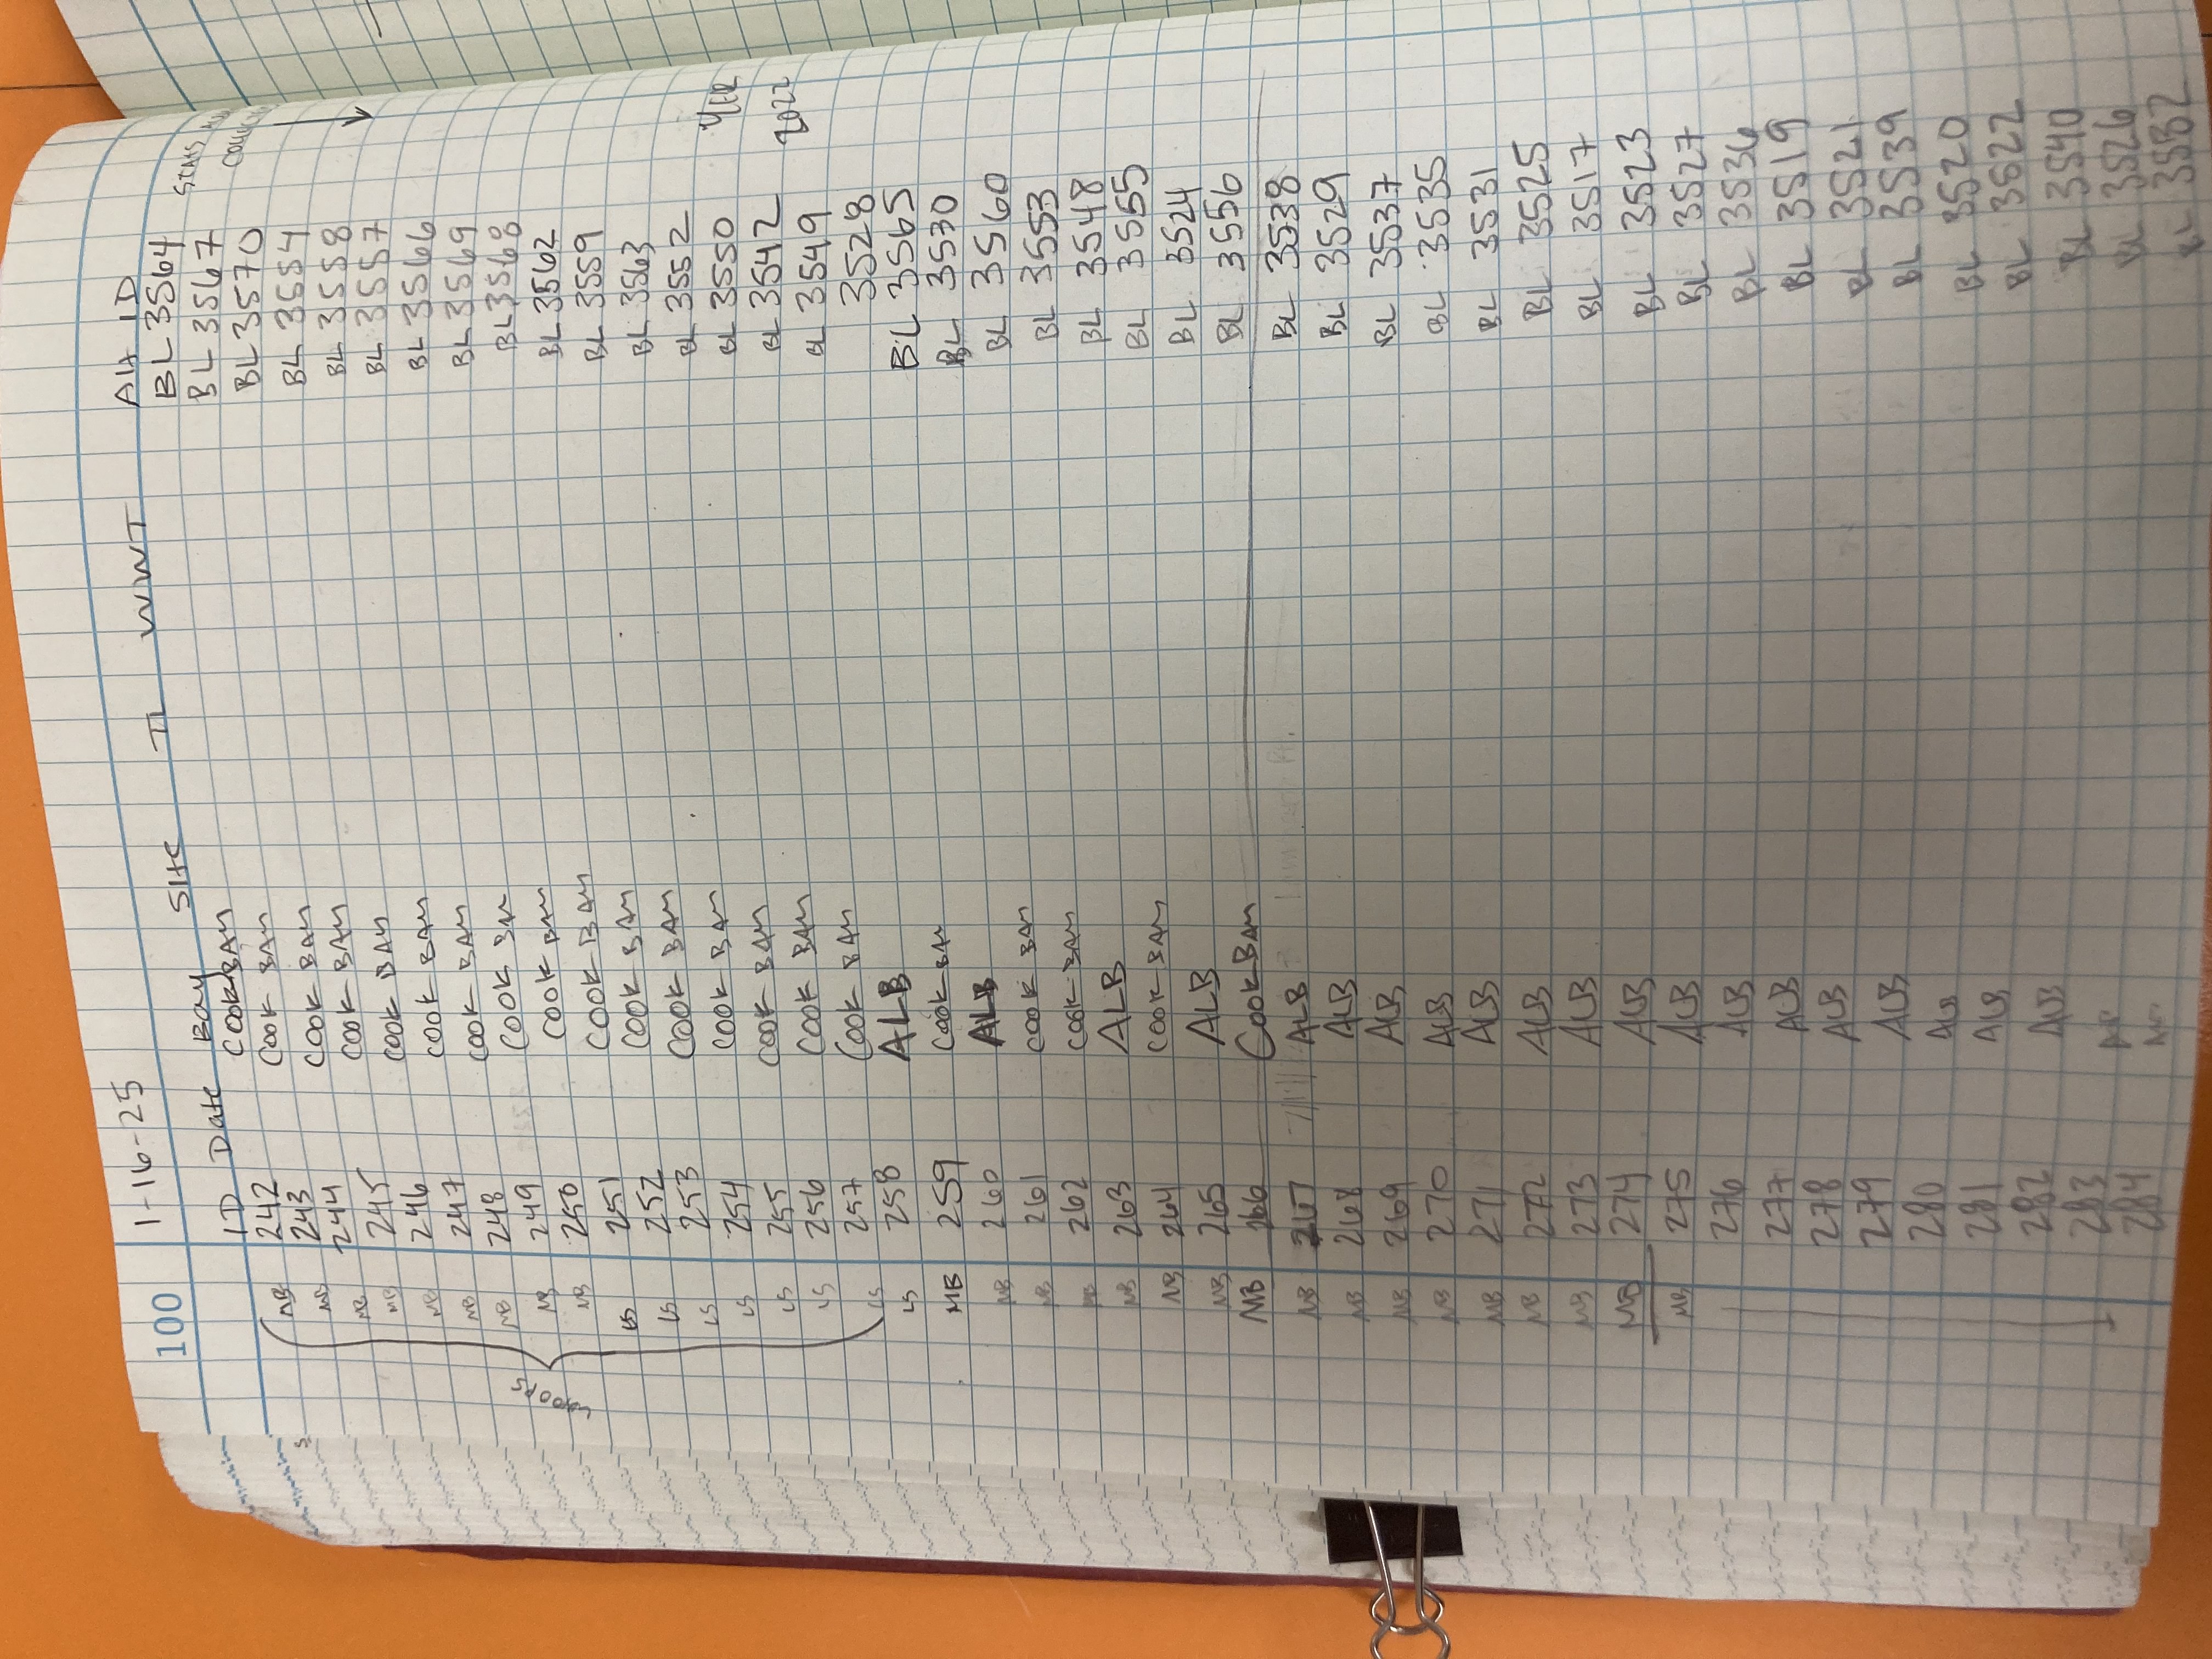 100 1-16-25
ID Date Bay Site TL WWT Alt ID
MB 242 COOK BAY BL 3564
MB 243 COOK BAY BL 3567
MB 244 COOK BAY BL 3570
MB 245 COOK BAY BL 3554
MB 246 COOK BAY BL 3558
MB 247 COOK BAY BL 3557
MB 248 COOK BAY BL 3566
MB 249 COOK BAY BL 3569
MB 250 COOK BAY BL 3568
LS 251 COOK BAY BL 3562
LS 252 COOK BAY BL 3559
LS 253 COOK BAY BL 3563
LS 254 COOK BAY BL 3552
LS 255 COOK BAY BL 3550
LS 256 COOK BAY BL 3542
LS 257 COOK BAY BL 3549
LS 258 ALB 3528
MB 259 COOK BAY BL 3565
MB 260 ALB BL 3530
MB 261 COOK BAY BL 3560
MB 262 COOK BAY BL 3553
MB 263 ALB BL 3548
MB 264 COOK BAY BL 3555
MB 265 ALB BL 3524
MB 266 COOK BAY BL 3556
MB 267 ALB BL 3538
MB 268 ALB BL 3529
MB 269 ALB BL 3537
MB 270 ALB BL 3535
MB 271 ALB BL 3531
MB 272 ALB BL 3525
MB 273 ALB BL 3517
MB 274 ALB BL 3523
MB 275 ALB BL 3527
276 ALB BL 3536
277 ALB BL 3519
278 ALB BL 3521
279 ALB BL 3539
280 ALB BL 3520
281 ALB BL 3522
282 ALB BL 3540
283 BL 3526
284 BL 3532
2022